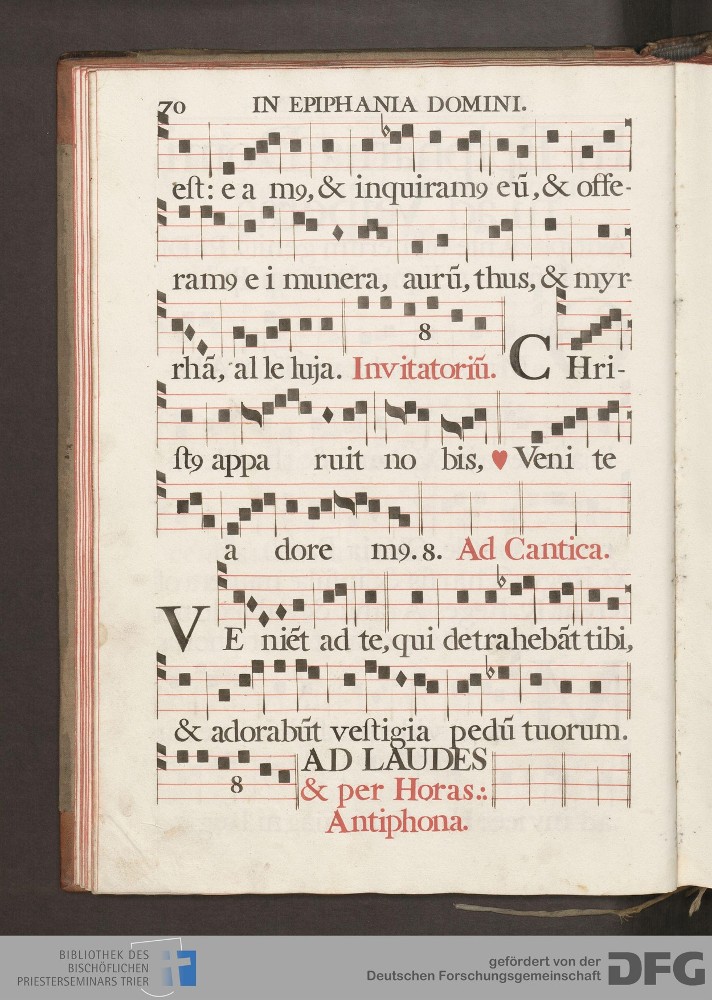 70 IN EPIPHANIA DOMINI.
eſt: e a m9, & inquiram9 eū, & offe-
ram9 e i munera, aurū, thus, & myr-
8
rhā, al le luja. Invitatoriū. C Hri-
ſt9 appa ruit no bis, ♥ Veni te
a dore m9. 8. Ad Cantica.
V E niēt ad te, qui detrahebāt tibi,
& adorabūt veſtigia pedū tuorum.
8 AD LAUDES
& per Horas.:
Antiphona.
BIBLIOTHEK DES
BISCHÖFLICHEN
PRIESTERSEMINARS TRIER
gefördert von der
Deutschen Forschungsgemeinschaft DFG